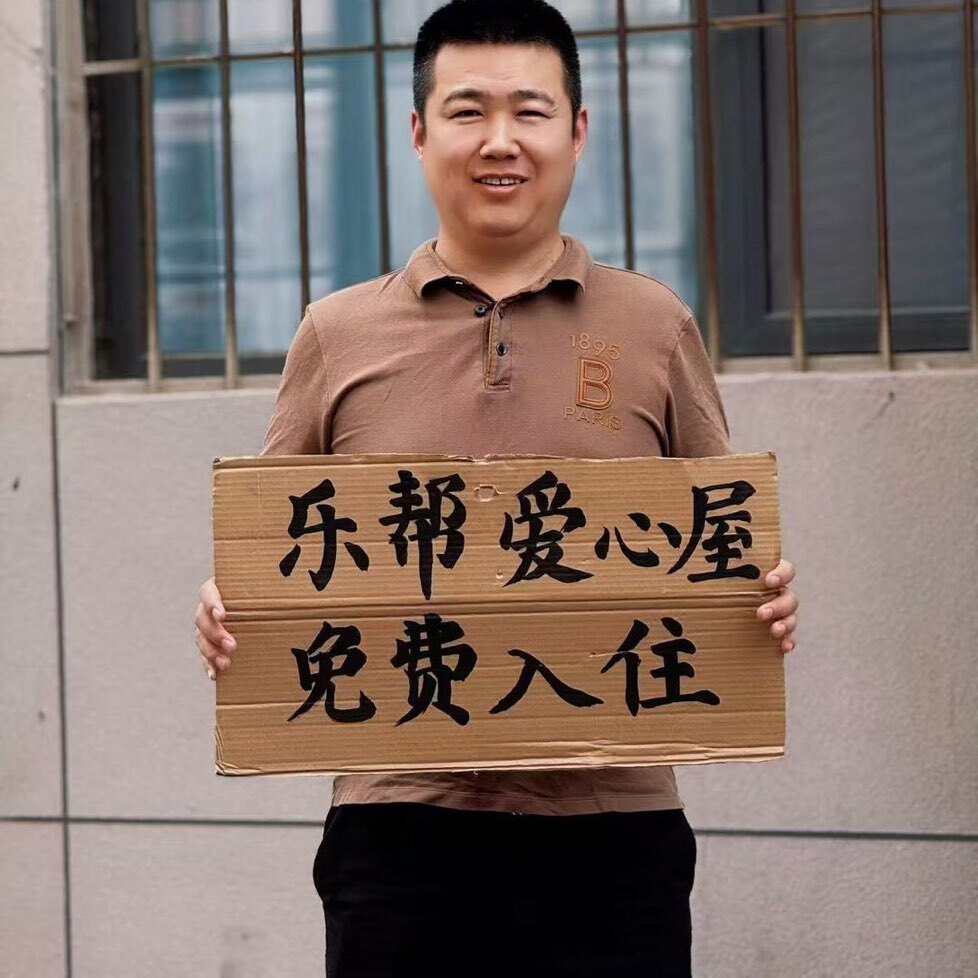 1895
B
PARIS
乐帮爱心屋
免费入住